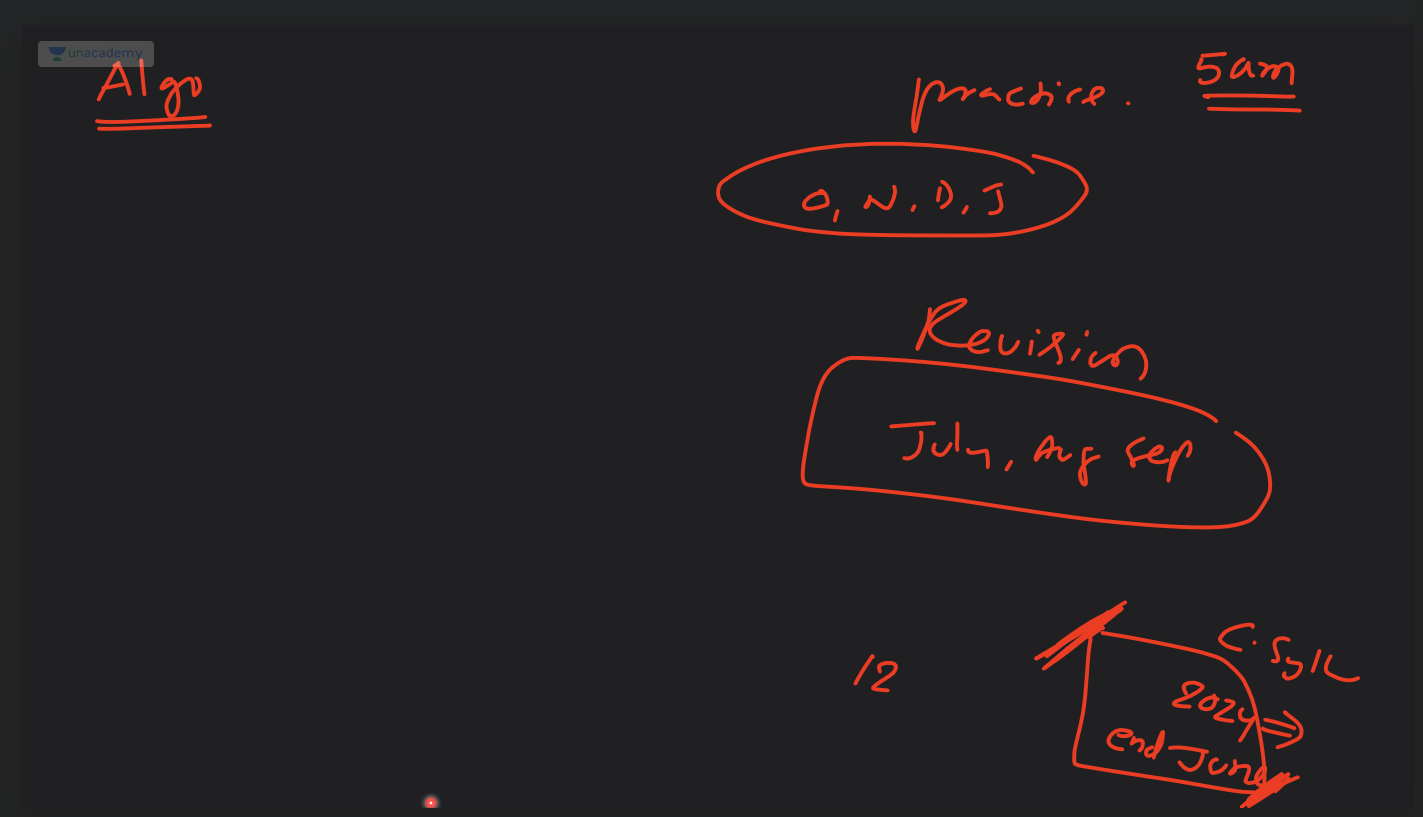 unacademy
Algo
practice.
5am
O, N, D, J
Revision
July, Aug Sep
12
C. Syll
2024 ⇒
end June